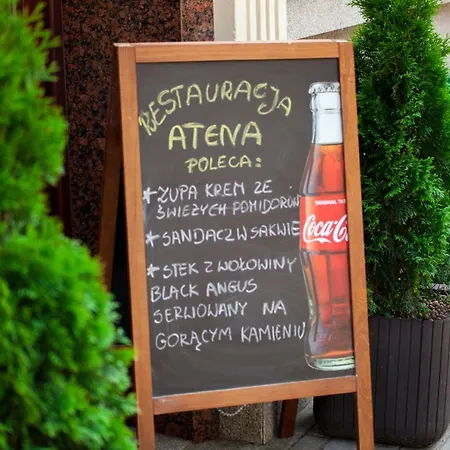 RESTAURACJA
ATENA
POLECA:
* ZUPA KREM ZE
ŚWIEŻYCH POMIDORÓW
* SANDACZ W SAKWIE
* STEK Z WOŁOWINY
BLACK ANGUS
SERWOWANY NA
GORĄCYM KAMIENIU
ORIGINAL TA
Coca-Cola